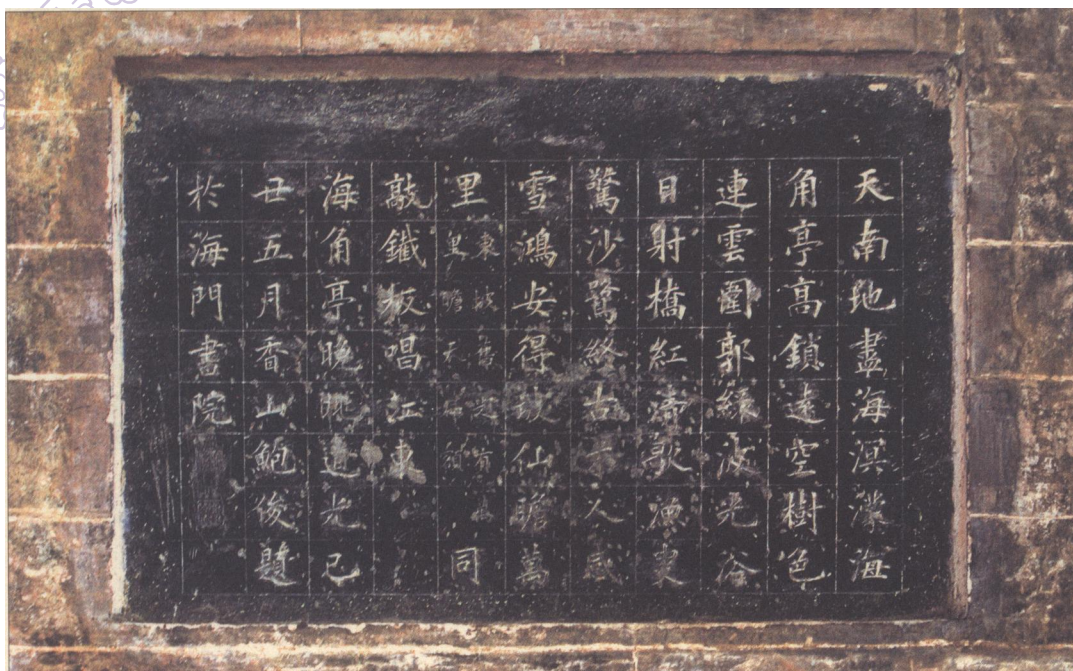 天南地盡海溟濛海
角亭高鎖遠空樹色
連雲圍郭綠波光浴
日射橋紅歌漁叟
驚沙鷺終古人感
雪鴻安得坡仙瞻萬
里東坡舊有里瞻天額同
敲鐵板唱江東
海角亭晚眺道光己
丑五月香山鮑俊題
於海門書院